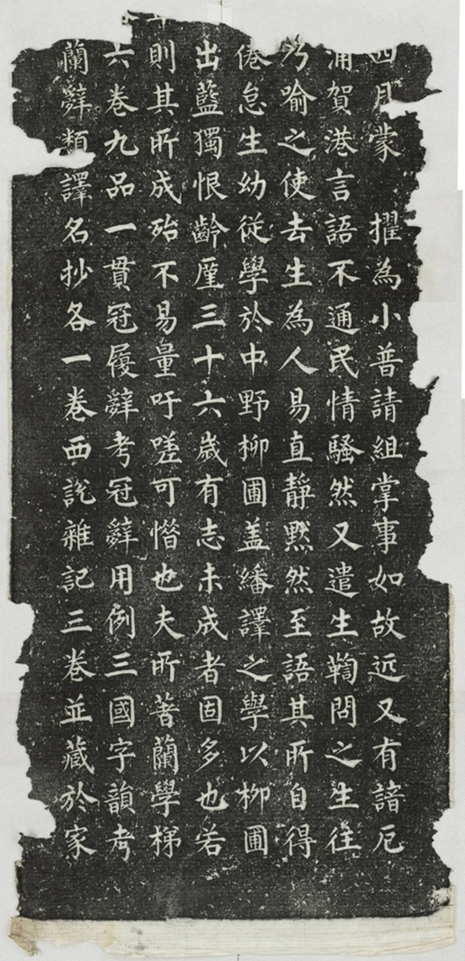 四月蒙 擢為小普請組掌事如故近又有諳厄
浦賀港言語不通民情騷然又遣生鞫問之生往
乃喻之使去生為人易直靜默然至語其所自得
倦怠生幼從學於中野柳圃盖繙譯之學以柳圃
出藍獨恨齡厪三十六歲有志未成者固多也若
則其所成殆不易量吁嗟可惜也夫所著蘭學梯
六卷九品一貫冠履辭考冠辭用例三國字韻考
蘭辭類譯名抄各一卷西說雜記三卷並藏於家